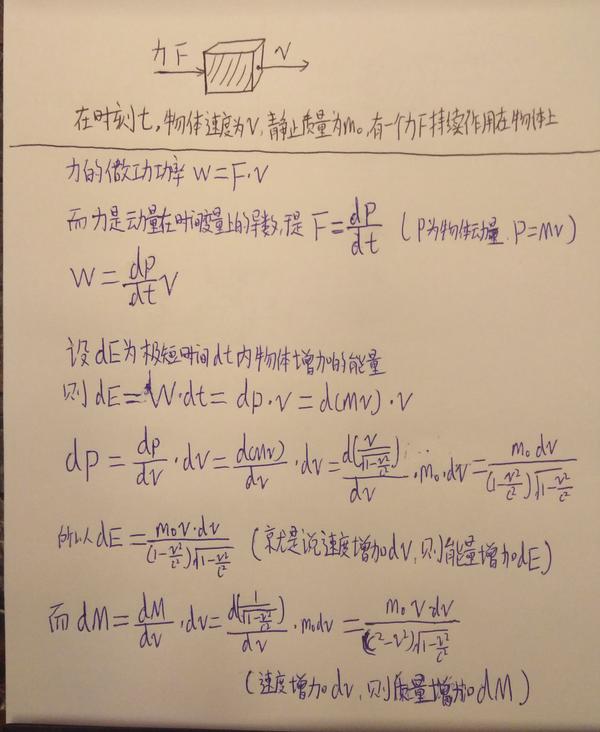 力F V
在时刻t,物体速度为V,静止质量为m₀,有一个力F持续作用在物体上
力的做功功率 W=F·V
而力是动量在时间度量上的导数,于是 F=dP/dt (P为物体动量,P=MV)
W=dp/dt V
设dE为极短时间dt内物体增加的能量
则dE=W·dt=dp·v=d(Mv)·v
dp=dp/dv·dv=d(Mv)/dv·dv=d(v/√(1-v²/c²))/dv·m₀·dv=m₀dv/((1-v²/c²)√(1-v²/c²))
所以dE=m₀v·dv/((1-v²/c²)√(1-v²/c²)) (就是说速度增加dv,则能量增加dE)
而dM=dM/dv·dv=d(1/√(1-v²/c²))/dv·m₀dv=m₀vdv/((c²-v²)√(1-v²/c²))
(速度增加dv,则质量增加dM)